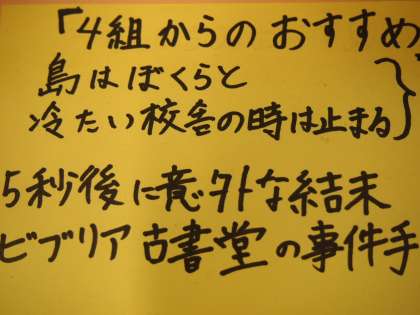 「4組からのおすすめ
島はぼくらと
冷たい校舎の時は止まる
5秒後に意外な結末
ビブリア古書堂の事件手